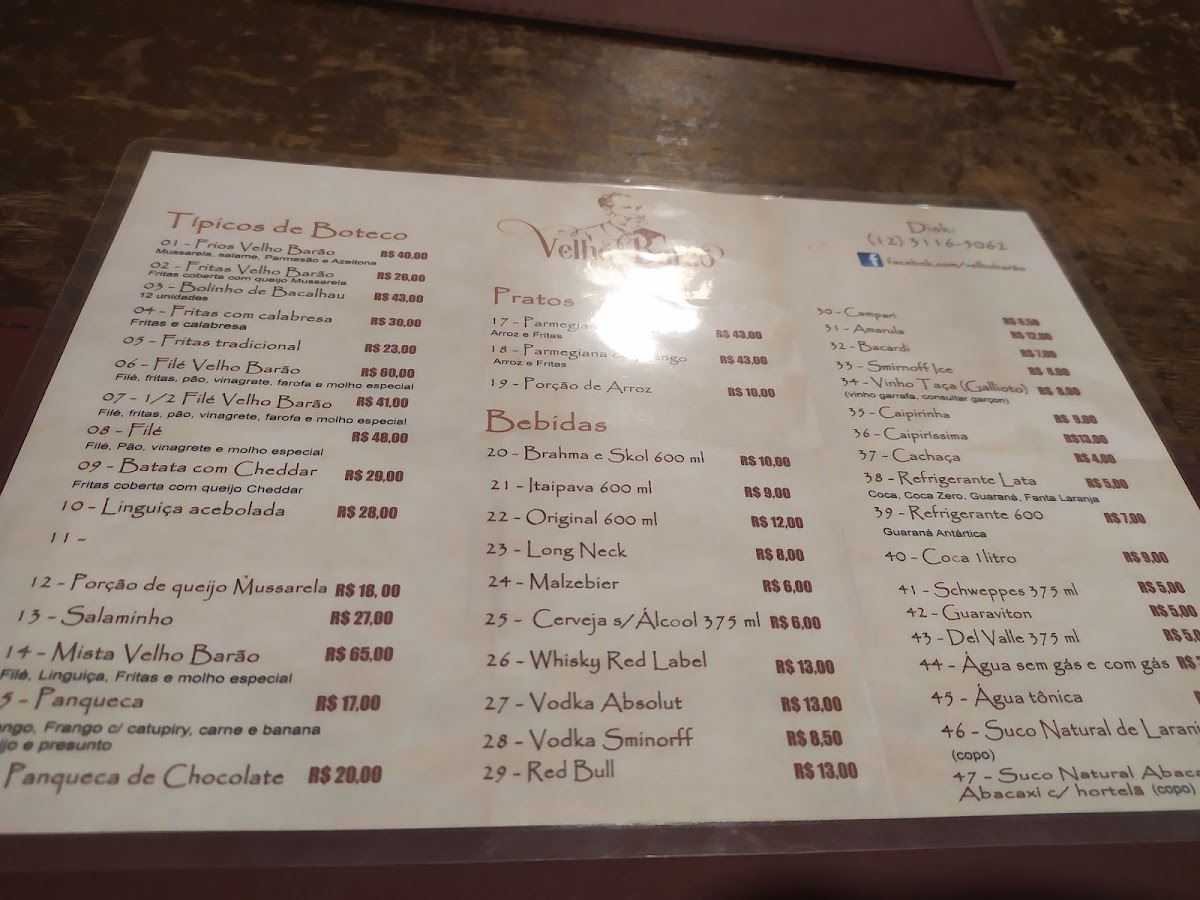 Típicos de Boteco
01 - Frios Velho Barão R$ 40,00
Mussarela, salame, Parmesão e Azeitona
02 - Fritas Velho Barão R$ 26,00
Fritas coberta com queijo Mussarela
03 - Bolinho de Bacalhau R$ 43,00
12 unidades
04 - Fritas com calabresa R$ 30,00
Fritas e calabresa
05 - Fritas tradicional R$ 23,00
06 - Filé Velho Barão R$ 60,00
Filé, fritas, pão, vinagrete, farofa e molho especial
07 - 1/2 Filé Velho Barão R$ 41,00
Filé, fritas, pão, vinagrete, farofa e molho especial
08 - Filé R$ 48,00
Filé, Pão, vinagrete e molho especial
09 - Batata com Cheddar R$ 29,00
Fritas coberta com queijo Cheddar
10 - Linguiça acebolada R$ 28,00
11 -
12 - Porção de queijo Mussarela R$ 18,00
13 - Salaminho R$ 27,00
14 - Mista Velho Barão R$ 65,00
Filé, Linguiça, Fritas e molho especial
5 - Panqueca R$ 17,00
ango, Frango c/ catupiry, carne e banana
ijo e presunto
Panqueca de Chocolate R$ 20,00
Velho Barão
Pratos
17 - Parmegiana R$ 43,00
Arroz e Fritas
18 - Parmegiana de Frango R$ 43,00
Arroz e Fritas
19 - Porção de Arroz R$ 10,00
Bebidas
20 - Brahma e Skol 600 ml R$ 10,00
21 - Itaipava 600 ml R$ 9,00
22 - Original 600 ml R$ 12,00
23 - Long Neck R$ 8,00
24 - Malzebier R$ 6,00
25 - Cerveja s/ Álcool 375 ml R$ 6,00
26 - Whisky Red Label R$ 13,00
27 - Vodka Absolut R$ 13,00
28 - Vodka Sminorff R$ 8,50
29 - Red Bull R$ 13,00
Disk:
(12) 3116-5062
facebok.com/velhobarão
30 - Campari R$ 8,50
31 - Amarula R$ 12,00
32 - Bacardi R$ 7,00
33 - Smirnoff Ice R$ 8,00
34 - Vinho Taça (Gallioto) R$ 8,00
(vinho garrafa, consultar garçon)
35 - Caipirinha R$ 9,00
36 - Caipiríssima R$13,00
37 - Cachaça R$ 4,00
38 - Refrigerante Lata R$ 5,00
Coca, Coca Zero, Guaraná, Fanta Laranja
39 - Refrigerante 600 R$ 7,00
Guaraná Antártica
40 - Coca 1 litro R$ 9,00
41 - Schweppes 375 ml R$ 5,00
42 - Guaraviton R$ 5,00
43 - Del Valle 375 ml R$ 5,0
44 - Água sem gás e com gás R$
45 - Água tônica
46 - Suco Natural de Laranj
(copo)
47 - Suco Natural Abaca
Abacaxi c/ hortelã (copo)